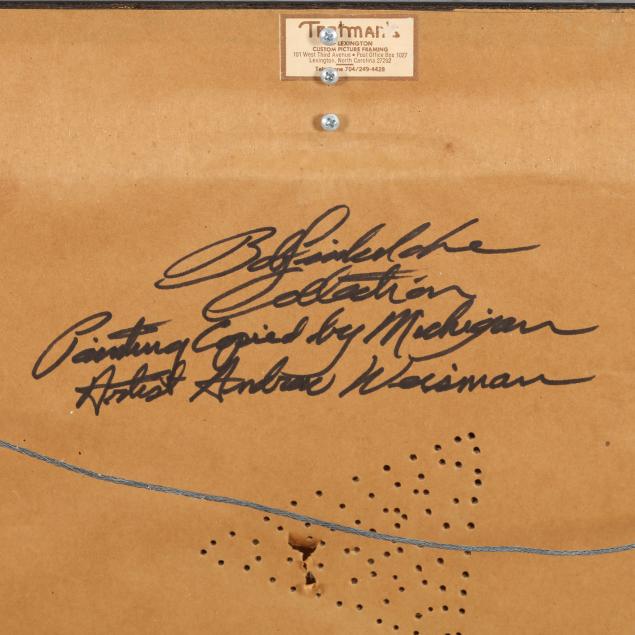 Trotman's
LEXINGTON
CUSTOM PICTURE FRAMING
101 West Third Avenue • Post Office Box 1027
Lexington, North Carolina 27292
Telephone 704/249-4428
Bob
Collection
Painting Copied by Michigan
Artist Andrew Weisman